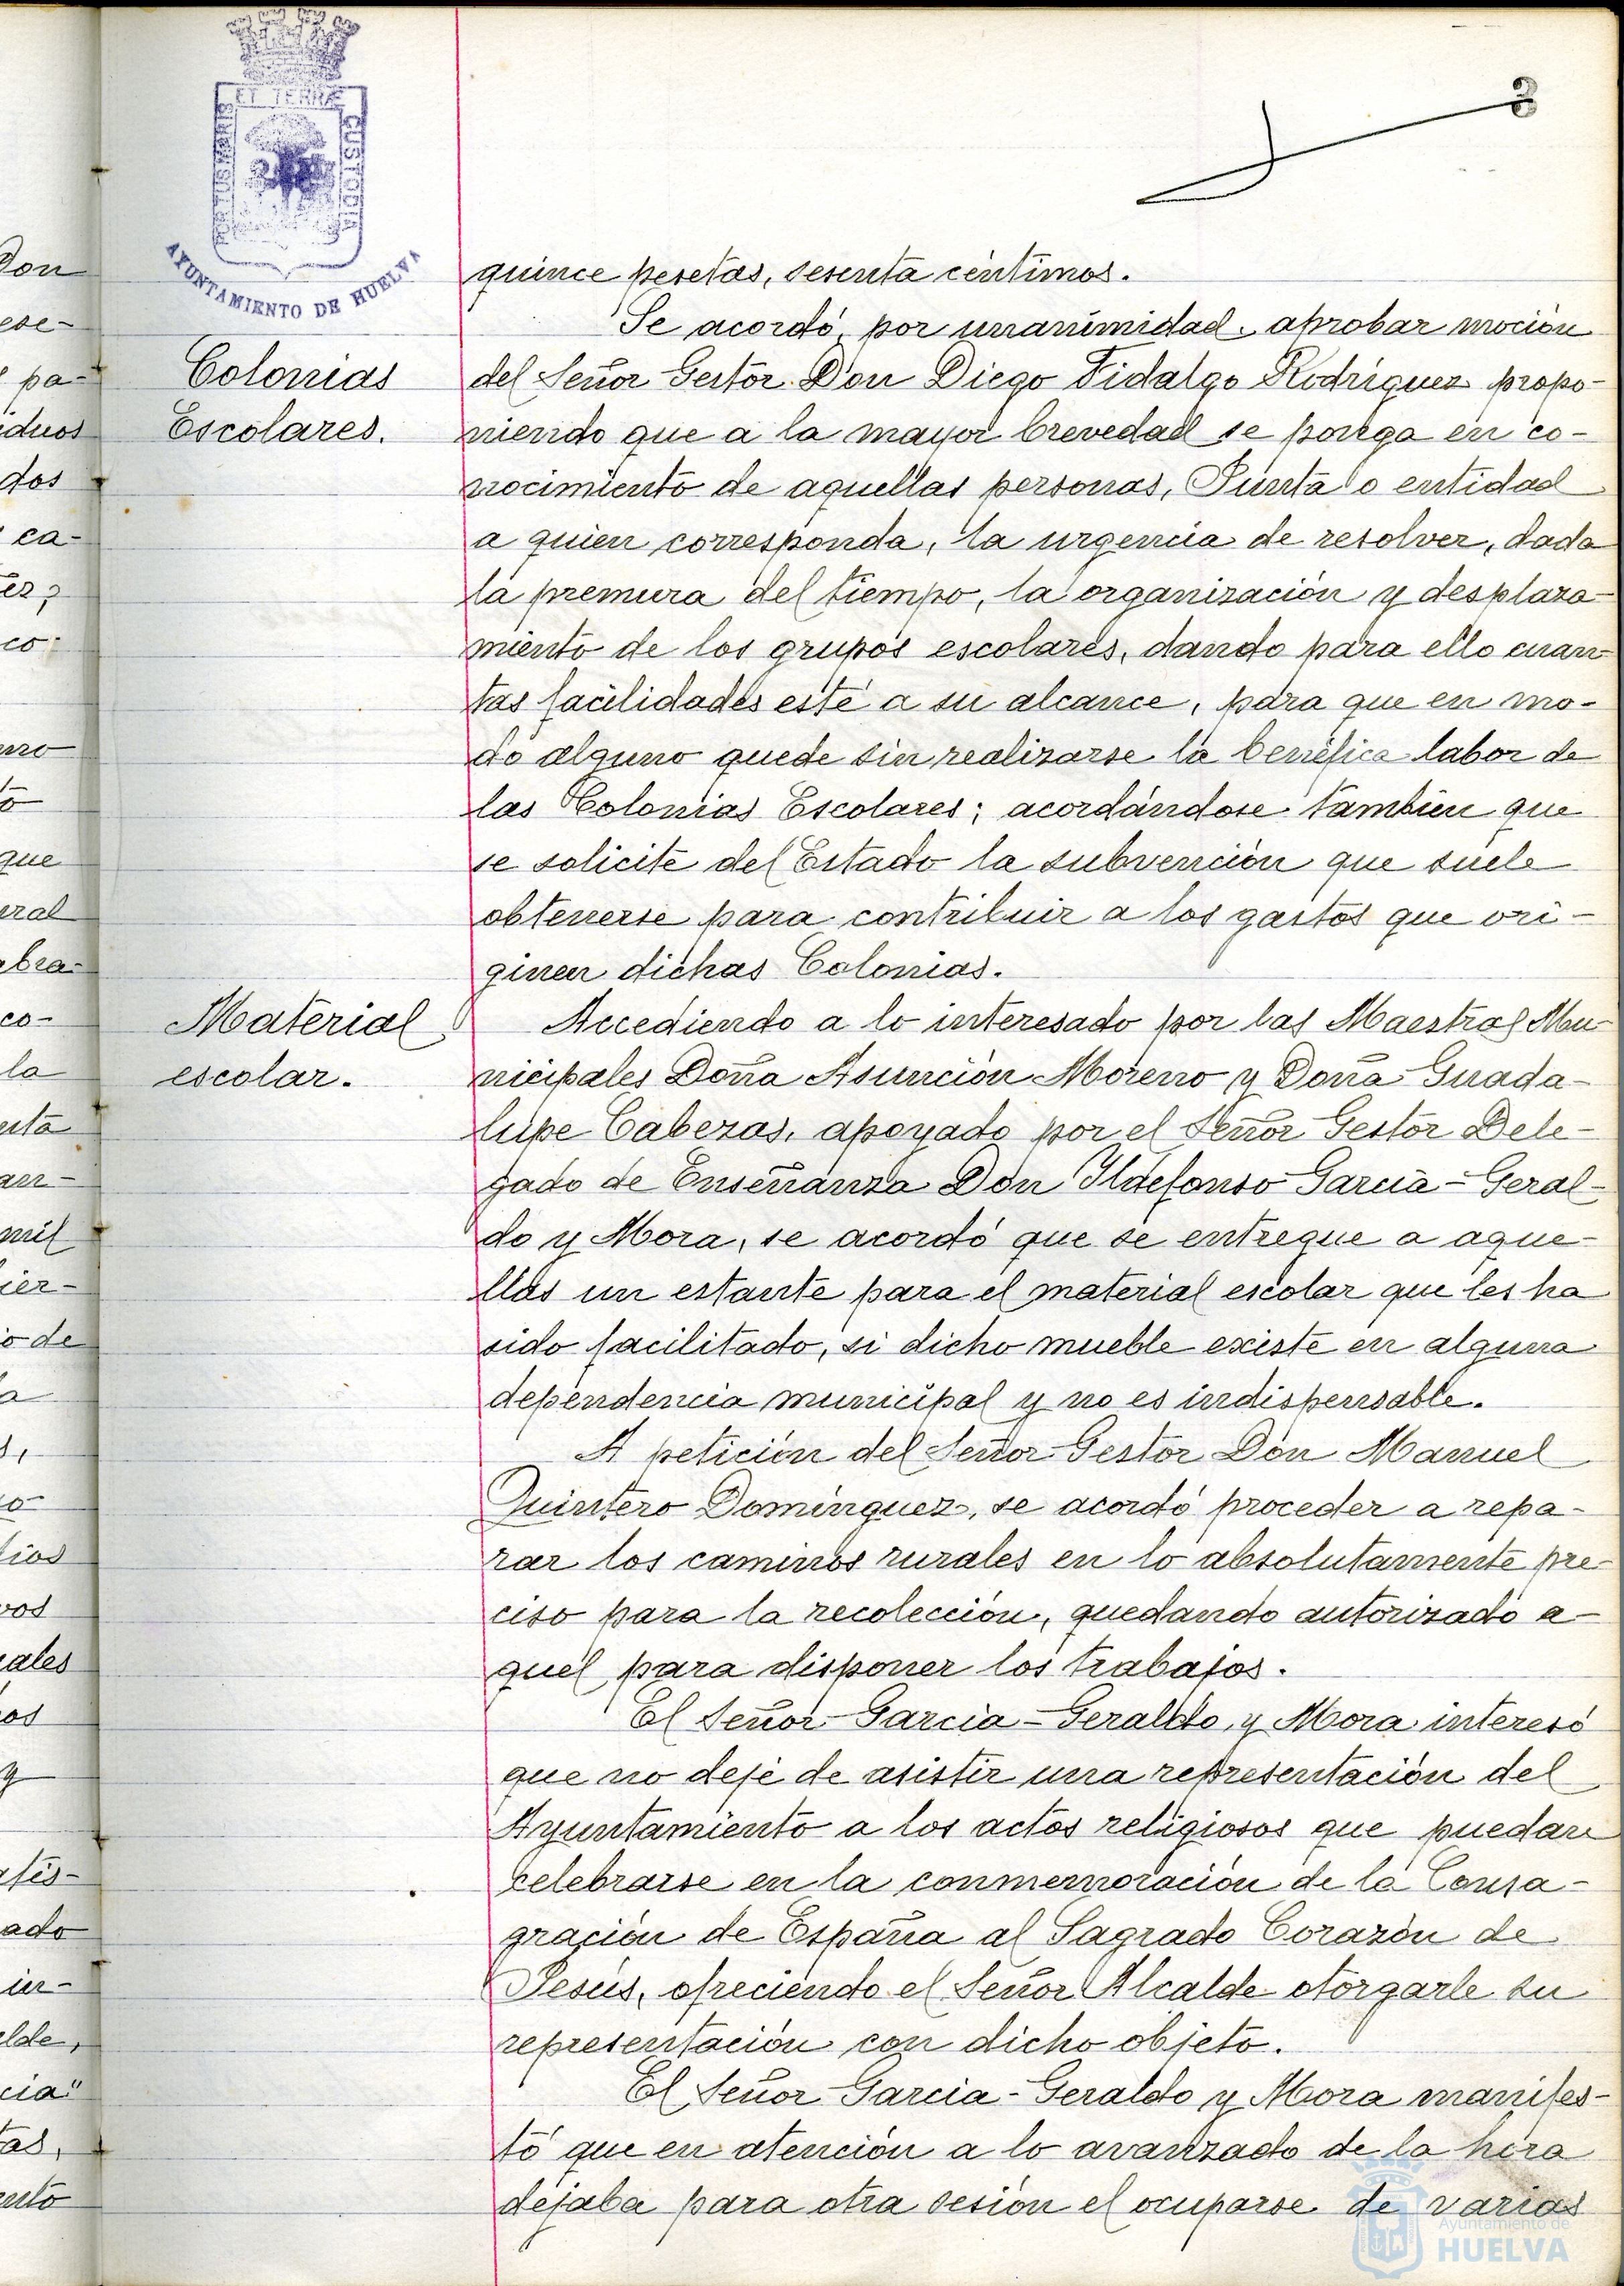 3
PORTUS MARIS
ET TERRÆ
CUSTODIA
AYUNTAMIENTO DE HUELVA
quince pesetas, sesenta céntimos.
Se acordó, por unanimidad, aprobar moción
Colonias
Escolares.
del Señor Gestor Don Diego Fidalgo Rodríguez propo-
niendo que a la mayor brevedad se ponga en co-
nocimiento de aquellas personas, Junta o entidad
a quien corresponda, la urgencia de resolver, dada
la premura del tiempo, la organización y desplaza-
miento de los grupos escolares, dando para ello cuan-
tas facilidades esté a su alcance, para que en mo-
do alguno quede sin realizarse la benéfica labor de
las Colonias Escolares; acordándose también que
se solicite del Estado la subvención que suele
obtenerse para contribuir a los gastos que ori-
ginen dichas Colonias.
Material
escolar.
Accediendo a lo interesado por las Maestras Mu-
nicipales Doña Asunción Moreno y Doña Guada-
lupe Cabezas, apoyado por el Señor Gestor Dele-
gado de Enseñanza Don Ildefonso García-Geral-
do y Mora, se acordó que se entregue a aque-
llas un estante para el material escolar que les ha
sido facilitado, si dicho mueble existe en alguna
dependencia municipal y no es indispensable.
A petición del Señor Gestor Don Manuel
Quintero Domínguez, se acordó proceder a repa-
rar los caminos rurales en lo absolutamente pre-
ciso para la recolección, quedando autorizado a-
quel para disponer los trabajos.
El Señor García-Geraldo y Mora interesó
que no deje de asistir una representación del
Ayuntamiento a los actos religiosos que puedan
celebrarse en la conmemoración de la Consa-
gración de España al Sagrado Corazón de
Jesús, ofreciendo el Señor Alcalde otorgarle su
representación con dicho objeto.
El Señor García-Geraldo y Mora manifes-
tó que en atención a lo avanzado de la hora
dejaba para otra sesión el ocuparse de varias
Don
ese-
pa-
iduos
dos
ca-
co-
mo
que
eral
abra-
co-
la
mil
ier-
o de
ales
ado
alde,
cia"
Ayuntamiento de
HUELVA